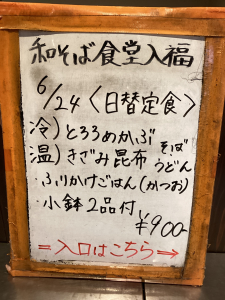 和そば食堂入福
6/24〈日替定食〉
冷)とろろめかぶ そば
温)きざみ昆布 うどん
・ふりかけごはん(かつお)
・小鉢2品付
¥900-
=入口はこちら⇒